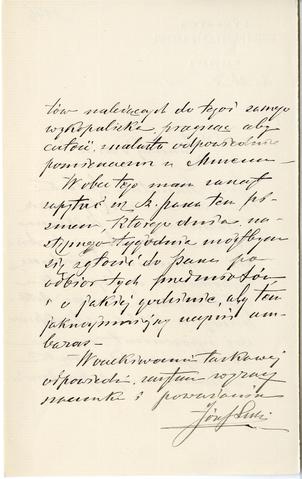 tów należących do tegoż samego
wykopaliska, pragnąc aby
całość znalazła odpowiednie
pomieszczenie w Muzeum.
Wobec tego mam zaszczyt
zapytać W. Pana tem pi-
smem, którego dnia na-
stępnego tygodnia mógłbym
się zgłosić do Pana po
odbiór tych przedmiotów
i o jakiej godzinie, aby tem
jaknajmniejszy sprawić am-
baras.
W oczekiwaniu łaskawej
odpowiedzi, zostaję z wyrazy
szacunku i poważania
Józef